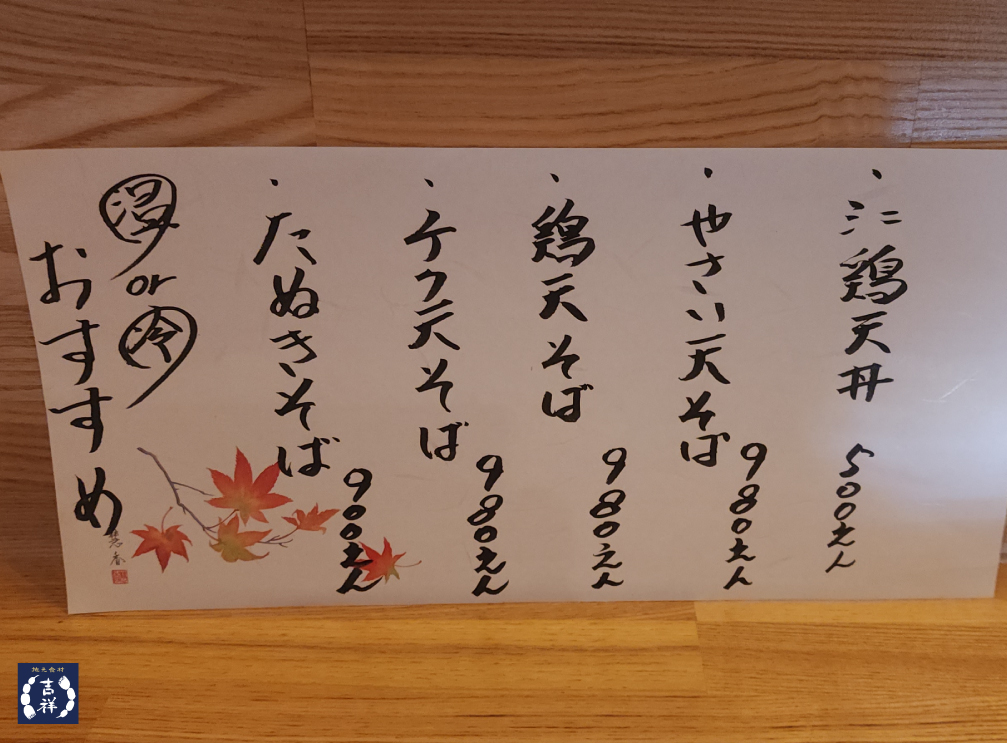 ・ミニ鶏天丼 500えん
・やさい天そば 980えん
・鶏天そば 980えん
・イカ天そば 980えん
・たぬきそば 900えん
温or冷
おすすめ
地元食材
吉祥